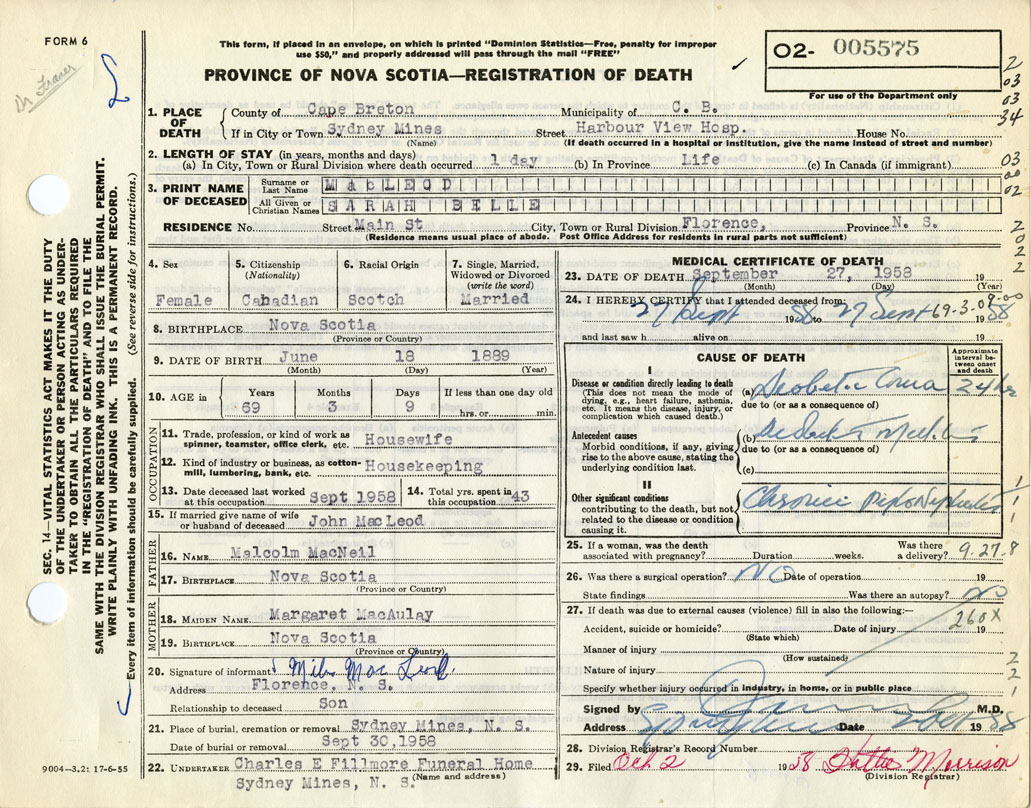 FORM 6
This form, if placed in an envelope, on which is printed "Dominion Statistics—Free, penalty for improper
use $50," and properly addressed will pass through the mail "FREE"
PROVINCE OF NOVA SCOTIA—REGISTRATION OF DEATH
02- 005575
For use of the Department only
Dr Fraser
SEC. 14—VITAL STATISTICS ACT MAKES IT THE DUTY
OF THE UNDERTAKER OR PERSON ACTING AS UNDER-
TAKER TO OBTAIN ALL THE PARTICULARS REQUIRED
IN THE "REGISTRATION OF DEATH" AND TO FILE THE
SAME WITH THE DIVISION REGISTRAR WHO SHALL ISSUE THE BURIAL PERMIT.
WRITE PLAINLY WITH UNFADING INK. THIS IS A PERMANENT RECORD.
Every item of information should be carefully supplied. (See reverse side for instructions.)
1. PLACE OF DEATH
County of Cape Breton Municipality of C. B.
If in City or Town Sydney Mines Street Harbour View Hosp. House No.
(Name) (If death occurred in a hospital or institution, give the name instead of street and number)
2. LENGTH OF STAY (in years, months and days)
(a) In City, Town or Rural Division where death occurred 1 day (b) In Province Life (c) In Canada (if immigrant)
3. PRINT NAME OF DECEASED
Surname or Last Name MacLEOD
All Given or Christian Names SARAH BELLE
RESIDENCE No. Street Main St City, Town or Rural Division Florence, Province N. S.
(Residence means usual place of abode. Post Office Address for residents in rural parts not sufficient)
2
03
03
34
03
00
02
2
0
2
2
4. Sex 5. Citizenship (Nationality) 6. Racial Origin 7. Single, Married, Widowed or Divorced (write the word)
Female Cabadian Scotch Married
8. BIRTHPLACE Nova Scotia
(Province or Country)
9. DATE OF BIRTH June 18 1889
(Month) (Day) (Year)
10. AGE in Years Months Days If less than one day old
69 3 9 hrs. or min.
OCCUPATION
11. Trade, profession, or kind of work as spinner, teamster, office clerk, etc. Housewife
12. Kind of industry or business, as cotton-mill, lumbering, bank, etc. Housekeeping
13. Date deceased last worked at this occupation Sept 1958 14. Total yrs. spent in this occupation 43
15. If married give name of wife or husband of deceased John MacLeod
FATHER
16. NAME Malcolm MacNeil
17. BIRTHPLACE Nova Scotia
(Province or Country)
MOTHER
18. MAIDEN NAME Margaret MacAulay
19. BIRTHPLACE Nova Scotia
(Province or Country)
20. Signature of informant Mac Leod
Address Florence, N. S.
Relationship to deceased Son
21. Place of burial, cremation or removal Sydney Mines, N. S.
Date of burial or removal Sept 30,1958
22. UNDERTAKER Charles E Fillmore Funeral Home
(Name and address)
Sydney Mines, N. S.
9004—3.2: 17-6-55
MEDICAL CERTIFICATE OF DEATH
23. DATE OF DEATH September 27, 1958 19
(Month) (Day) (Year)
24. I HEREBY CERTIFY that I attended deceased from:
27 Sept 1958 to 27 Sept 1958
69-3-09-00
and last saw h alive on 19
CAUSE OF DEATH
Approximate interval between onset and death
I
Disease or condition directly leading to death
(This does not mean the mode of dying, e.g., heart failure, asthenia, etc. It means the disease, injury, or complication which caused death.)
(a) Diabetic Coma 24 hrs
due to (or as a consequence of)
Antecedent causes
Morbid conditions, if any, giving rise to the above cause, stating the underlying condition last.
(b)
due to (or as a consequence of)
(c)
II
Other significant conditions
contributing to the death, but not related to the disease or condition causing it.
Chronic
1
1
1
25. If a woman, was the death associated with pregnancy? Duration weeks. Was there a delivery?
9.27.8
26. Was there a surgical operation? NO Date of operation 19
State findings Was there an autopsy? no
27. If death was due to external causes (violence) fill in also the following:—
260X
Accident, suicide or homicide? Date of injury 19
(State which)
Manner of injury
(How sustained)
Nature of injury
Specify whether injury occurred in industry, in home, or in public place
2
2
1
Signed by M.D.
Address Sydney Mines Date 2 Oct 1958
28. Division Registrar's Record Number
29. Filed Oct 2 1958 Hattie Morrison
(Division Registrar)